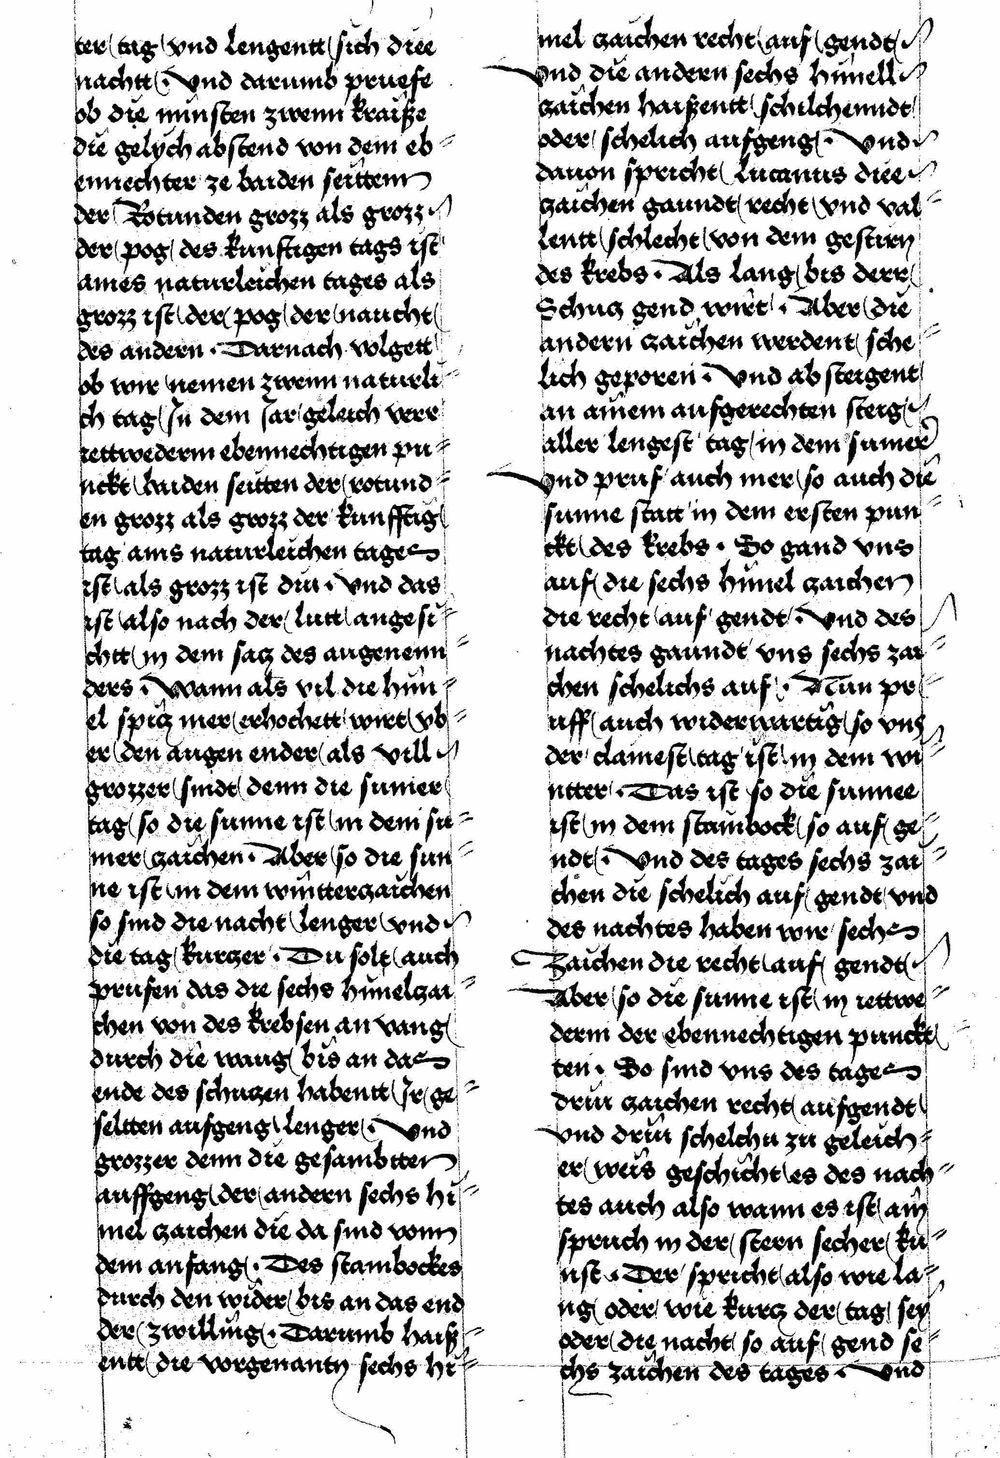 ter tag vnd lengentt sich diee
nachtt · Vnd darumb pruefe
ob die minsten zwenn kraiße
die gelych abstend von dem eb
ennechter ze baiden seittenn
der Rotunden grozz als grozz
der pog des kunftigen tags ist
ames naturleichen tages als
grozz ist der pog der naucht
des andern · Darnach volgett
ob wir nemen zwenn naturli
ch tag Jn dem Jar geleich verr
iettwederm ebennechtigen pu
nckt baiden seitten der rotund
en grozz als grozz der kunfftig
tag ains naturleichen tages
ist als grozz ist diu · Vnd das
ist also nach der lutt angesi
chtt in dem satz des augenenn
ders · Wann als vil die hūn
el spitz mer erhochett wirt vb
er den augen ender als vill
grozzer sindt denn die sumer
tag so die sunne ist in dem su
mer zaichen · Aber so die sun
ne ist in dem wintterzaichen
so sind die nacht lenger vnd
die tag kurczer · Du solt auch
prufen das die sechs himelzai
chen von des krebsen an vang
durch die waug bis an das
ende des schuczen habentt Jr ge
seltten aufgeng lenger · Vnd
grozzer denn die gesambtten
auffgeng der andern sechs hi
mel zaichen die da sind vonn
dem anfang · Des stainbockes
durch den wider bis an das end
der zwilling · Darumb haiß
entt die vorgenanty sechs hi
mel zaichen recht auf gendt
Vnd die andern sechs himell
zaichen haißentt schilchenndt
oder schelich aufgeng · Vnd
dauon spricht Lucanus diee
zaichen gaundt recht vnd val
lentt schlecht von dem gestirn
des krebs · Als lang bis derr
Schutz gend wirt · Aber die
andern zaichen werdent sche
lich geporen · Vnd ab steigent
an ainem aufgerechten steig
aller lengest tag in dem sumer
Vnd pruf auch mer so auch die
sunne statt in dem ersten pun
ckt des krebs · So gand vns
auf die sechs himel zaichen
die recht auf gendt · Vnd des
nachtes gaundt vns sechs zai
chen schelichs auf · Nun pr
uff auch widerwartig so vns
der clainest tag ist in dem wi
ntter · Das ist so die sunnee
ist in dem stainbock so auf ge
ndt · Vnd des tages sechs zai
chen die schelich auf gendt vnd
des nachtes haben wir sechs
Zaichen die recht auf gendt
Aber so die sunne ist in iettwe
derm der ebennechtigen punckt
ten · So sind vns des tages
driu zaichen recht aufgendt
vnd driu schelchu zu geleich
er weis geschicht es des nach
tes auch also wann es ist ain
spruch in der stern secher ku
nst · Der spricht also wie la
ng oder wie kurtz der tag sey
oder die nacht so auf gend se
chs zaichen des tages · Vnd